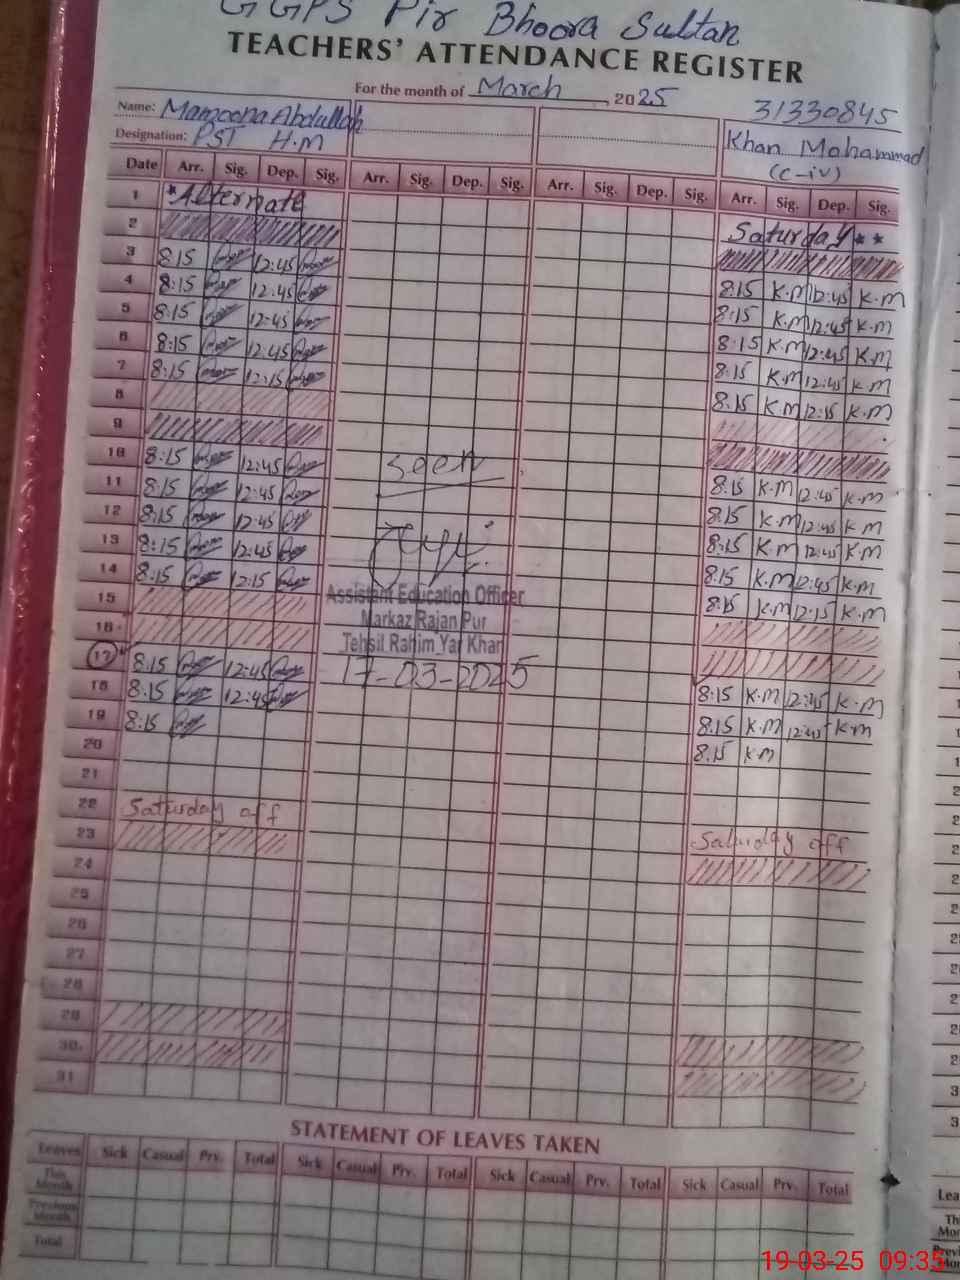 GGPS Pir Bhoora Sultan
TEACHERS' ATTENDANCE REGISTER
For the month of March, 2025
31330845
Name: Mamoona Abdullah
Khan Mohammad
Designation: PST H.M
(C-iv)
Date Arr. Sig. Dep. Sig. Arr. Sig. Dep. Sig. Arr. Sig. Dep. Sig. Arr. Sig. Dep. Sig.
1 *Alternate Saturday**
2
3 8:15 12:45 8:15 K.M 12:45 K.M
4 8:15 12:45 8:15 K.M 12:45 K.M
5 8:15 12:45 8:15 K.M 12:45 K.M
6 8:15 12:45 8:15 K.M 12:45 K.M
7 8:15 12:15 8:15 K.M 12:15 K.M
8
9
10 8:15 12:45 8:15 K.M 12:45 K.M
seen
11 8:15 12:45 8:15 K.M 12:45 K.M
12 8:15 12:45 8:15 K.M 12:45 K.M
13 8:15 12:45 8:15 K.M 12:45 K.M
14 8:15 12:15 8:15 K.M 12:15 K.M
15
Assistant Education Officer
Markaz Rajan Pur
16
Tehsil Rahim Yar Khan
17-03-2025
17 8:15 12:45 8:15 K.M 12:45 K.M
18 8:15 12:45 8:15 K.M 12:45 K.M
19 8:15 8:15 K.M
20
21
22 Saturday off Saturday off
23
24
25
26
27
28
29
30
31
STATEMENT OF LEAVES TAKEN
Leaves Sick Casual Prv. Total Sick Casual Prv. Total Sick Casual Prv. Total Sick Casual Prv. Total
This Month
Previous Month
Total
19-03-25 09:35